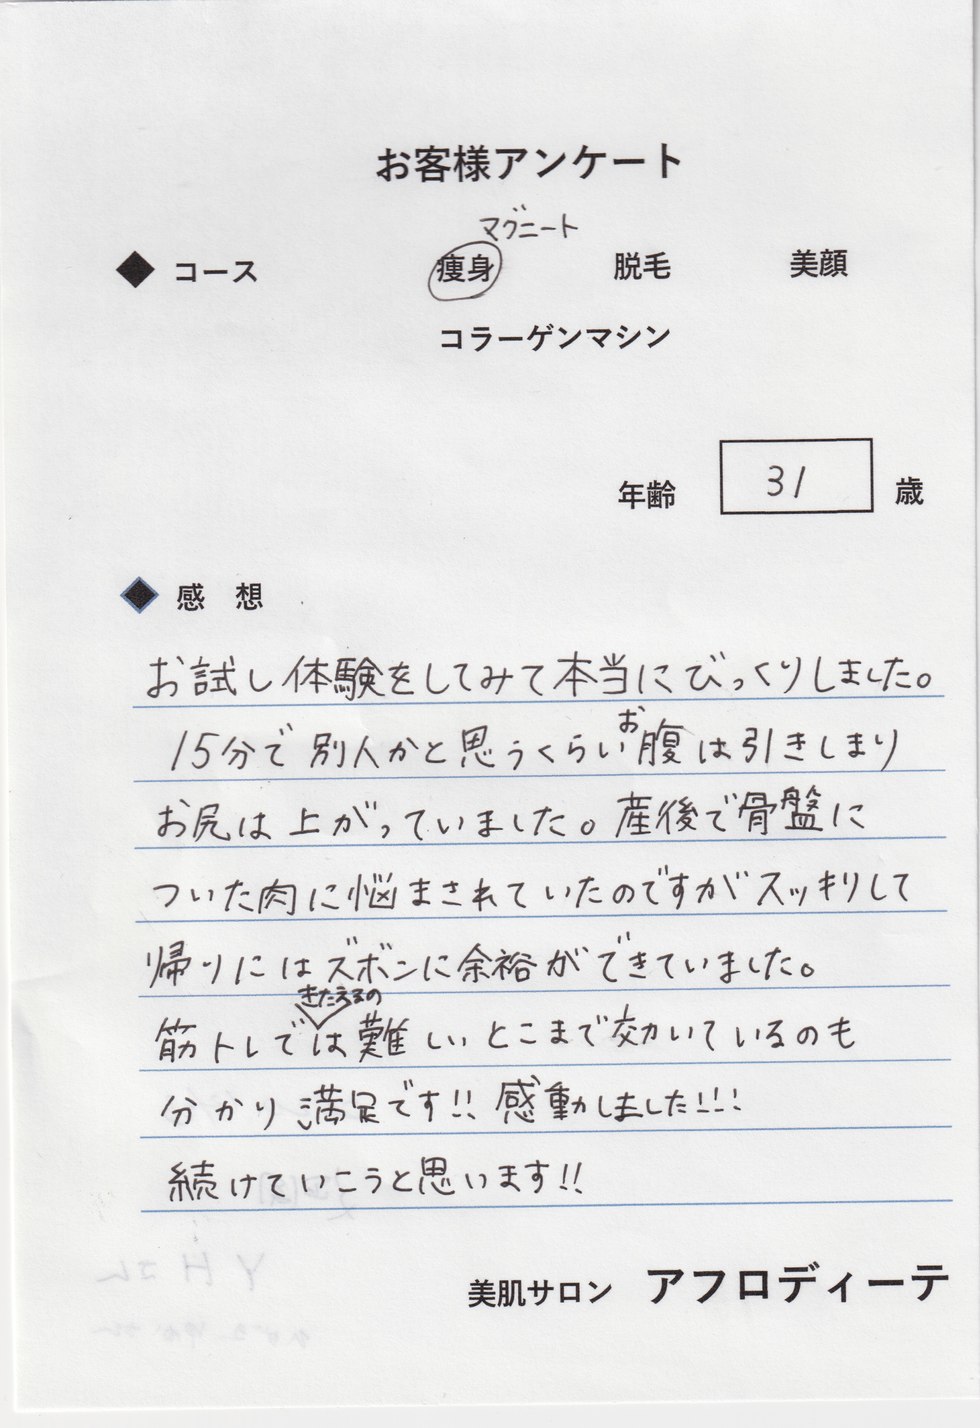 お客様アンケート
マグニート
◆ コース 痩身 脱毛 美顔
コラーゲンマシン
年齢 31 歳
◆ 感 想
お試し体験をしてみて本当にびっくりしました。
15分で別人かと思うくらいお腹は引きしまり
お尻は上がっていました。産後で骨盤に
ついた肉に悩まされていたのですがスッキリして
帰りにはズボンに余裕ができていました。
筋トレできたえるのは難しいとこまで効いているのも
分かり満足です!! 感動しました!!!
続けていこうと思います!!
美肌サロン アフロディーテ